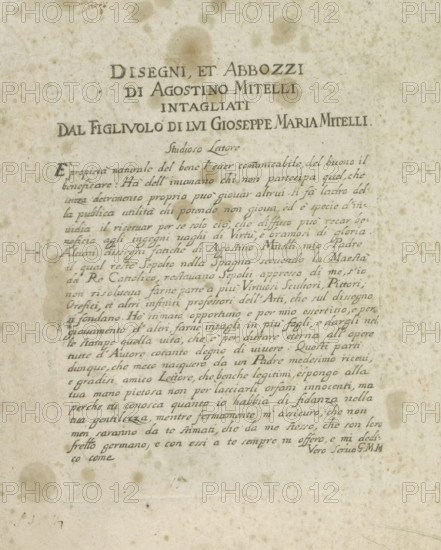 DISEGNI, ET ABBOZZI
DI AGOSTINO MITELLI
INTAGLIATI
DAL FIGLIVOLO DI LVI GIOSEPPE MARIA MITELLI.
Studioso Lettore
E propietà naturale del bene l'esser comunicabile, del buono il
beneficare: Hà dell'inumano chi non partecipa quel, che
senza detrimento proprio può giovar altrui. Si fà ladro del
la publica utilità chi potendo non giova, ed è specie d'in
uidia il ricettar per se solo ciò, che diffuso può recar be
neficio agli ingegni vaghi di Virtù, e bramosi di gloria
Alcuni disegni, fatiche di Agostino Mitelli mio Padre
il qual restò sepolto nella Spagna servendo la Maestà
del Rè Cattolico, restavano sepolti appresso di me, s'io
non risolveva farne parte a più Virtuosi Scultori, Pittori,
Orefici, et altri infiniti professori dell'Arti, che sul disegno
si fondano. Hò stimato opportuno e per mio essercitio, e per
giovamento d'altri farne intagli in più fogli, e dargli nel
le stampe quella vita, che è per durare eterna alle opere
tutte d'Autore cotanto degno di vivere. Questi parti
dunque, che meco nacquero da un Padre medesimo ricevi,
e gradisci, amico Lettore, che benche legitimi, espongo alla
tua mano pietosa non per lasciarli orfani innocenti, ma
perche tu conosca quanto io habbia di fidanza nella
tua gentilezza, mentre fermamente m'assicuro, che non
men saranno da te stimati, che da me stesso, che son loro
fratello germano, e con essi a te sempre m'offero, e mi dedi
co come
Vero Servo G.M.M
PHOTO12